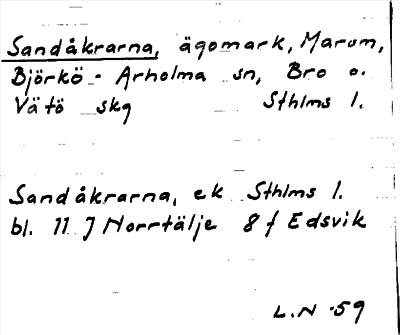 Sandåkrarna, ägomark, Marum,
Björkö - Arholma sn, Bro o.
Vätö skg Sthlms l.
Sandåkrarna, ek Sthlms l.
bl. 11 J Norrtälje 8 f Edsvik
L.N -59